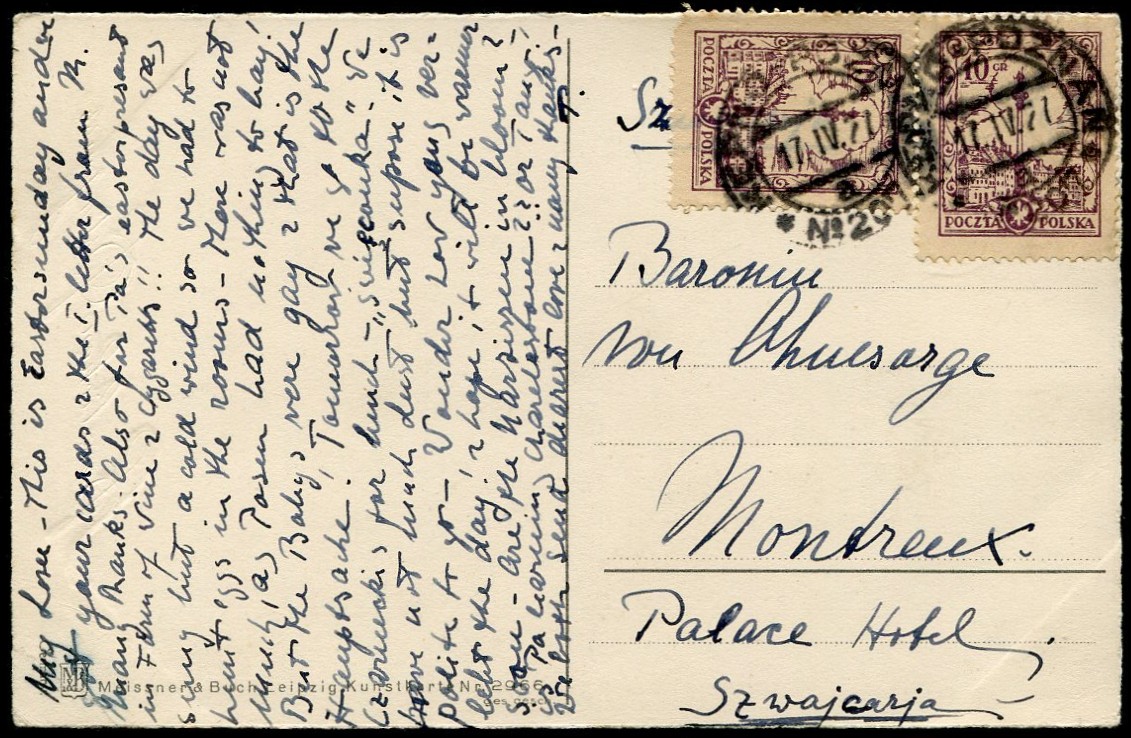 My Love - This is Eastersunday and
your cards & the I. letter from M.
Many thanks. Also for Pa's easterpresent
in Form of Vine & Cygaretts!! The day was
suny but a cold wind so we had to
hunt eggs in the rooms - There was not
much as Posen had nothing to buy!
But the Babys were gay & that is the
Hauptsache! Tomorrow we go to the
Czarneckis for lunch - "swiecouka" We
have not lunch but suppose it is
polite to go - Wonder how you
the day! I hope it will be warmer
soon - Are the Narzissen in bloom?
Pa learning Charelstown?? or Tant!
send dearest love & many thanks -
T.
Meissner & Buch Leipzig Kunstkarte Nr. 2966
ges. gesch.
Sz
POCZTA POLSKA
10 GR
POCZTA POLSKA
POZNAŃ
17.IV.27
a
* № 20
17.IV.27
Baronin
von Chnesorge
Montreux.
Palace Hotel.
Szwajcarja